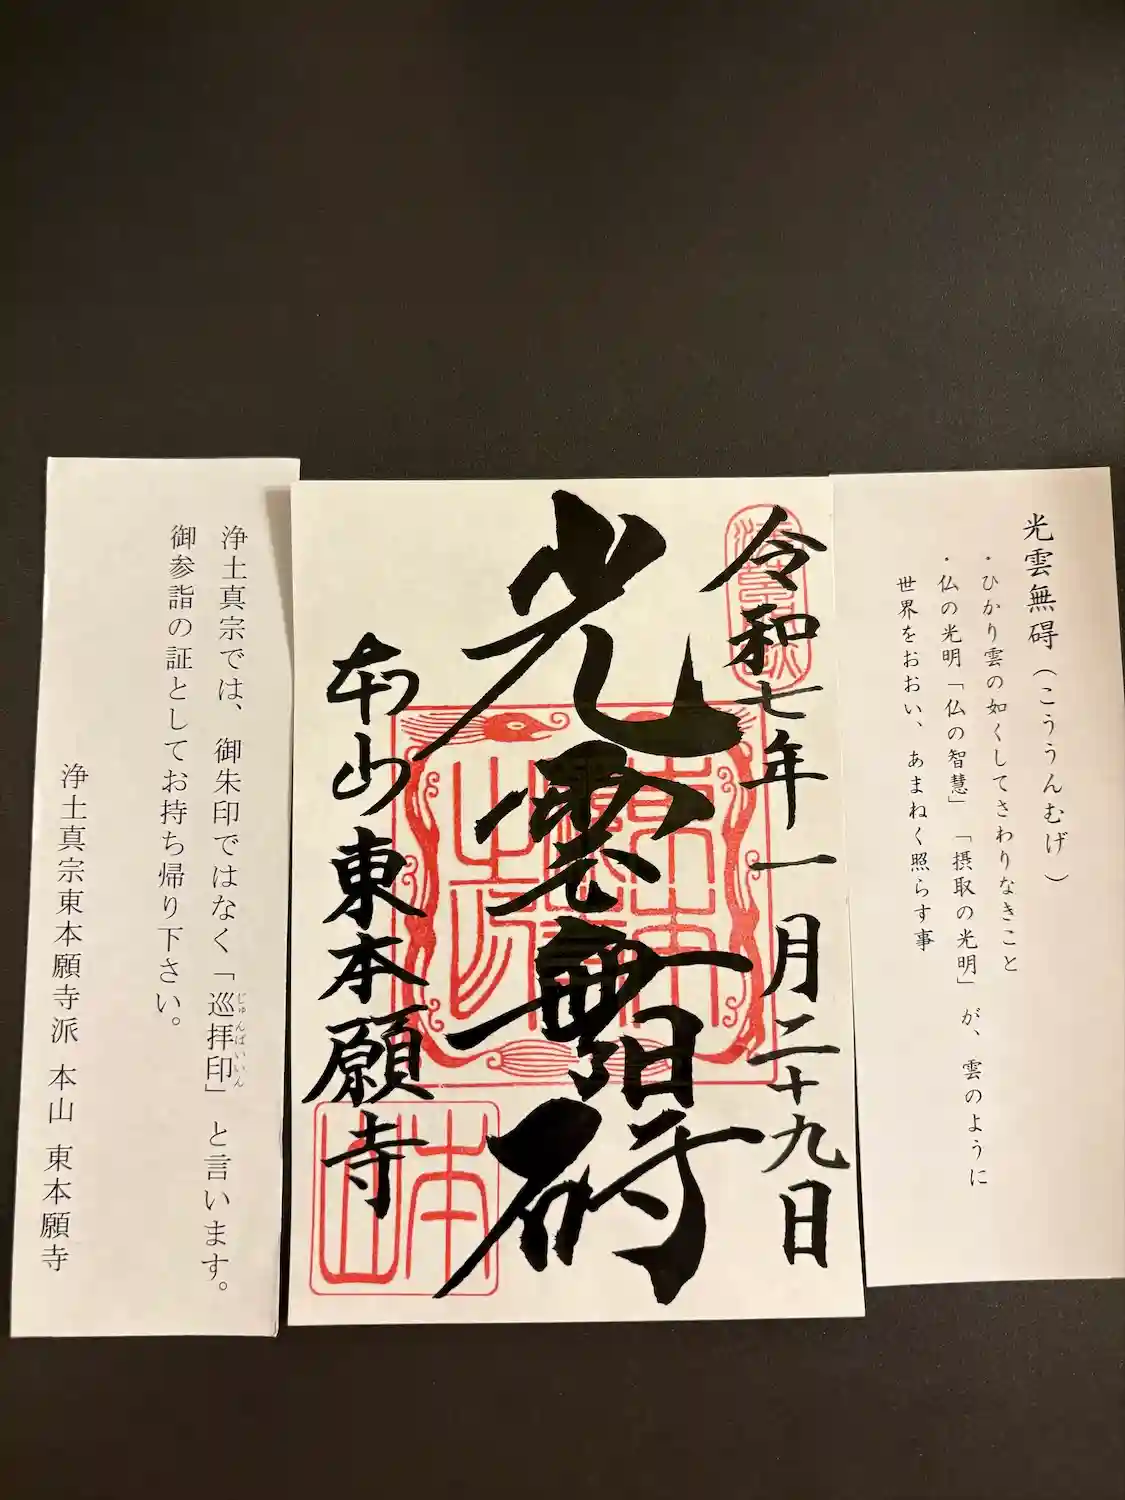 光雲無碍(こううんむげ)
・ひかり雲の如くしてさわりなきこと
・仏の光明「仏の智慧」「摂取の光明」が、雲のように
世界をおおい、あまねく照らす事
令和七年一月二十九日
光雲無碍
本山東本願寺
本山
浄土真宗では、御朱印ではなく「巡拝印」と言います。
じゅんぱいいん
御参詣の証としてお持ち帰り下さい。
浄土真宗東本願寺派 本山 東本願寺